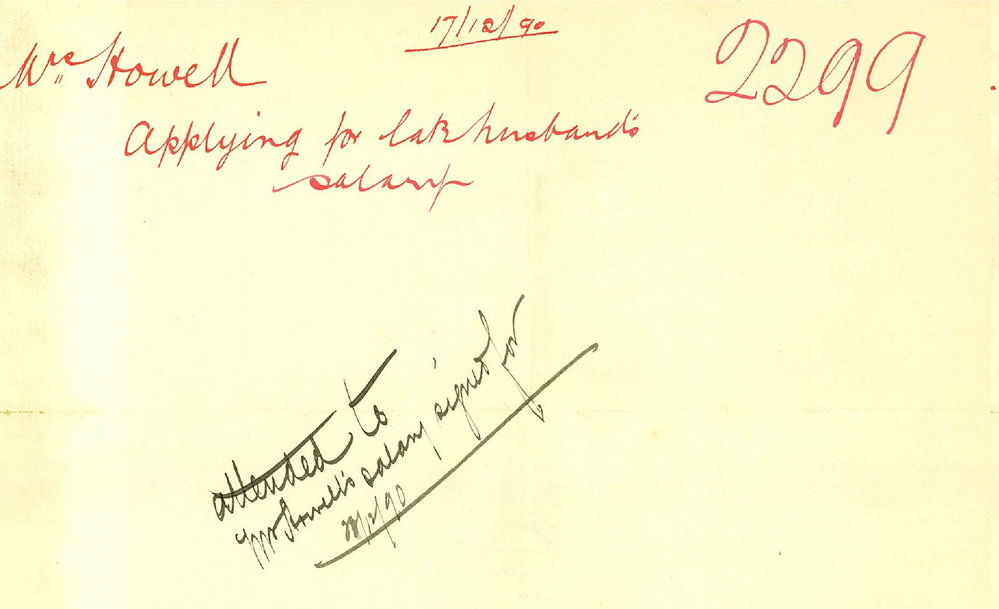 17/12/90
Mrs Howell
2299
Applying for late husband's
salary
attended to
Mr Howell's salary signed for
/90